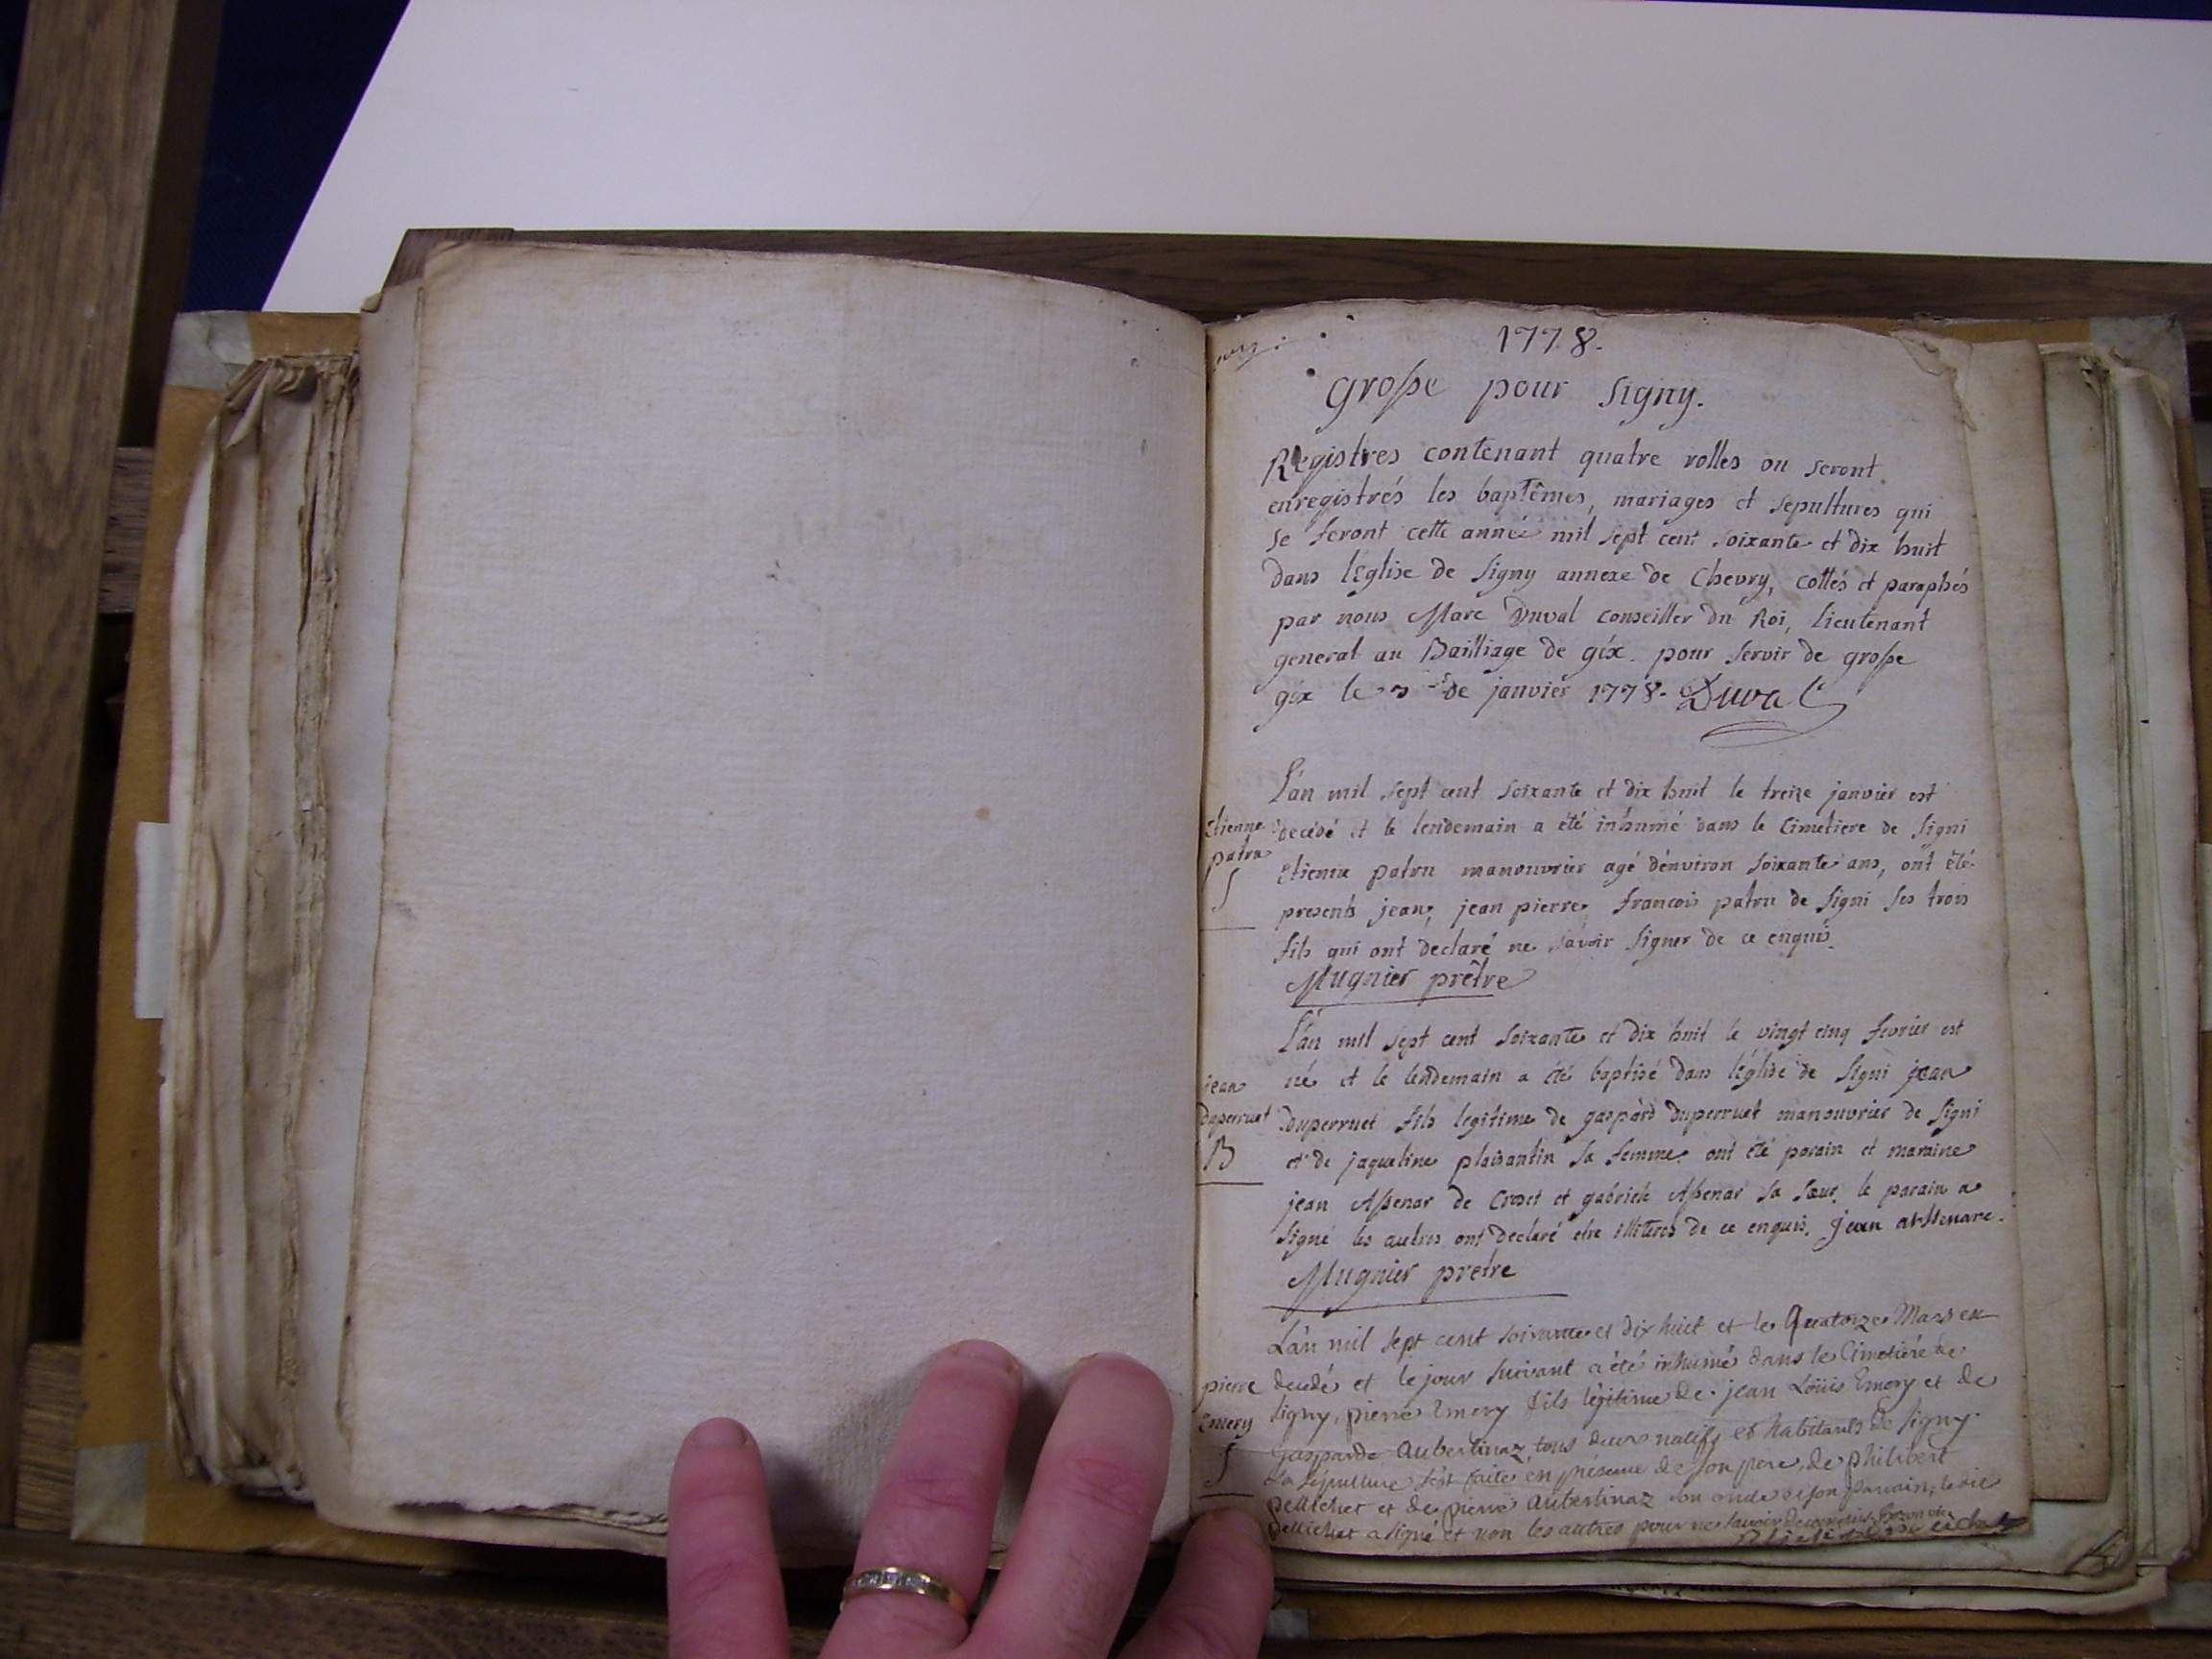 1778.
Grosse pour Signy.
Registres contenant quatre rolles ou seront
enregistrés les baptêmes, mariages et sepultures qui
se feront cette année mil sept cent soixante et dix huit
dans l'Eglise de Signy annexe de Chevry, cottés et paraphés
par nous Marc Duval conseiller du Roi, lieutenant
general au Bailliage de géx. pour servir de grosse
géx le de janvier 1778. Duval
L'an mil sept cent soixante et dix huit le treize janvier est
Etienne
patru
S
decédé et le lendemain a été inhumé dans le Cimetiere de Signi
Etienne patru manouvrier agé d'environ soixante ans, ont été
presents jean, jean pierre, francois patru de Signi ses trois
fils qui ont declaré ne savoir signer de ce enquis.
Mugnier prêtre
L'an mil sept cent soixante et dix huit le vingt cinq fevrier est
jean
Duperruet
B
né et le lendemain a été baptisé dans l'église de Signi jean
duperruet fils legitime de gaspard duperruet manouvrier de Signi
et de jaqueline plaisantin sa femme. ont été parain et maraine
jean Assenar de Crozet et gabriele Assenar sa sœur. le parain a
signé les autres ont declaré etre illiterés de ce enquis. jean assenare.
Mugnier pretre
L'an mil sept cent soixante et dix huit et le Quatorze Mars est
pierre
Emery
S
decedé et le jour suivant a été inhumé dans le Cimetiére de
Signy, pierre Emery fils légitime de jean Loüis Emery et de
Gasparde Aubertinaz tous deux natifs et habitants de Signy.
La sépulture s'est faite en présence de son pere, de philibert
pellichet et de pierre Aubertinaz son oncle et son parrain, ledit
pellichet a signé et non les autres pour ne savoir de ce enquis